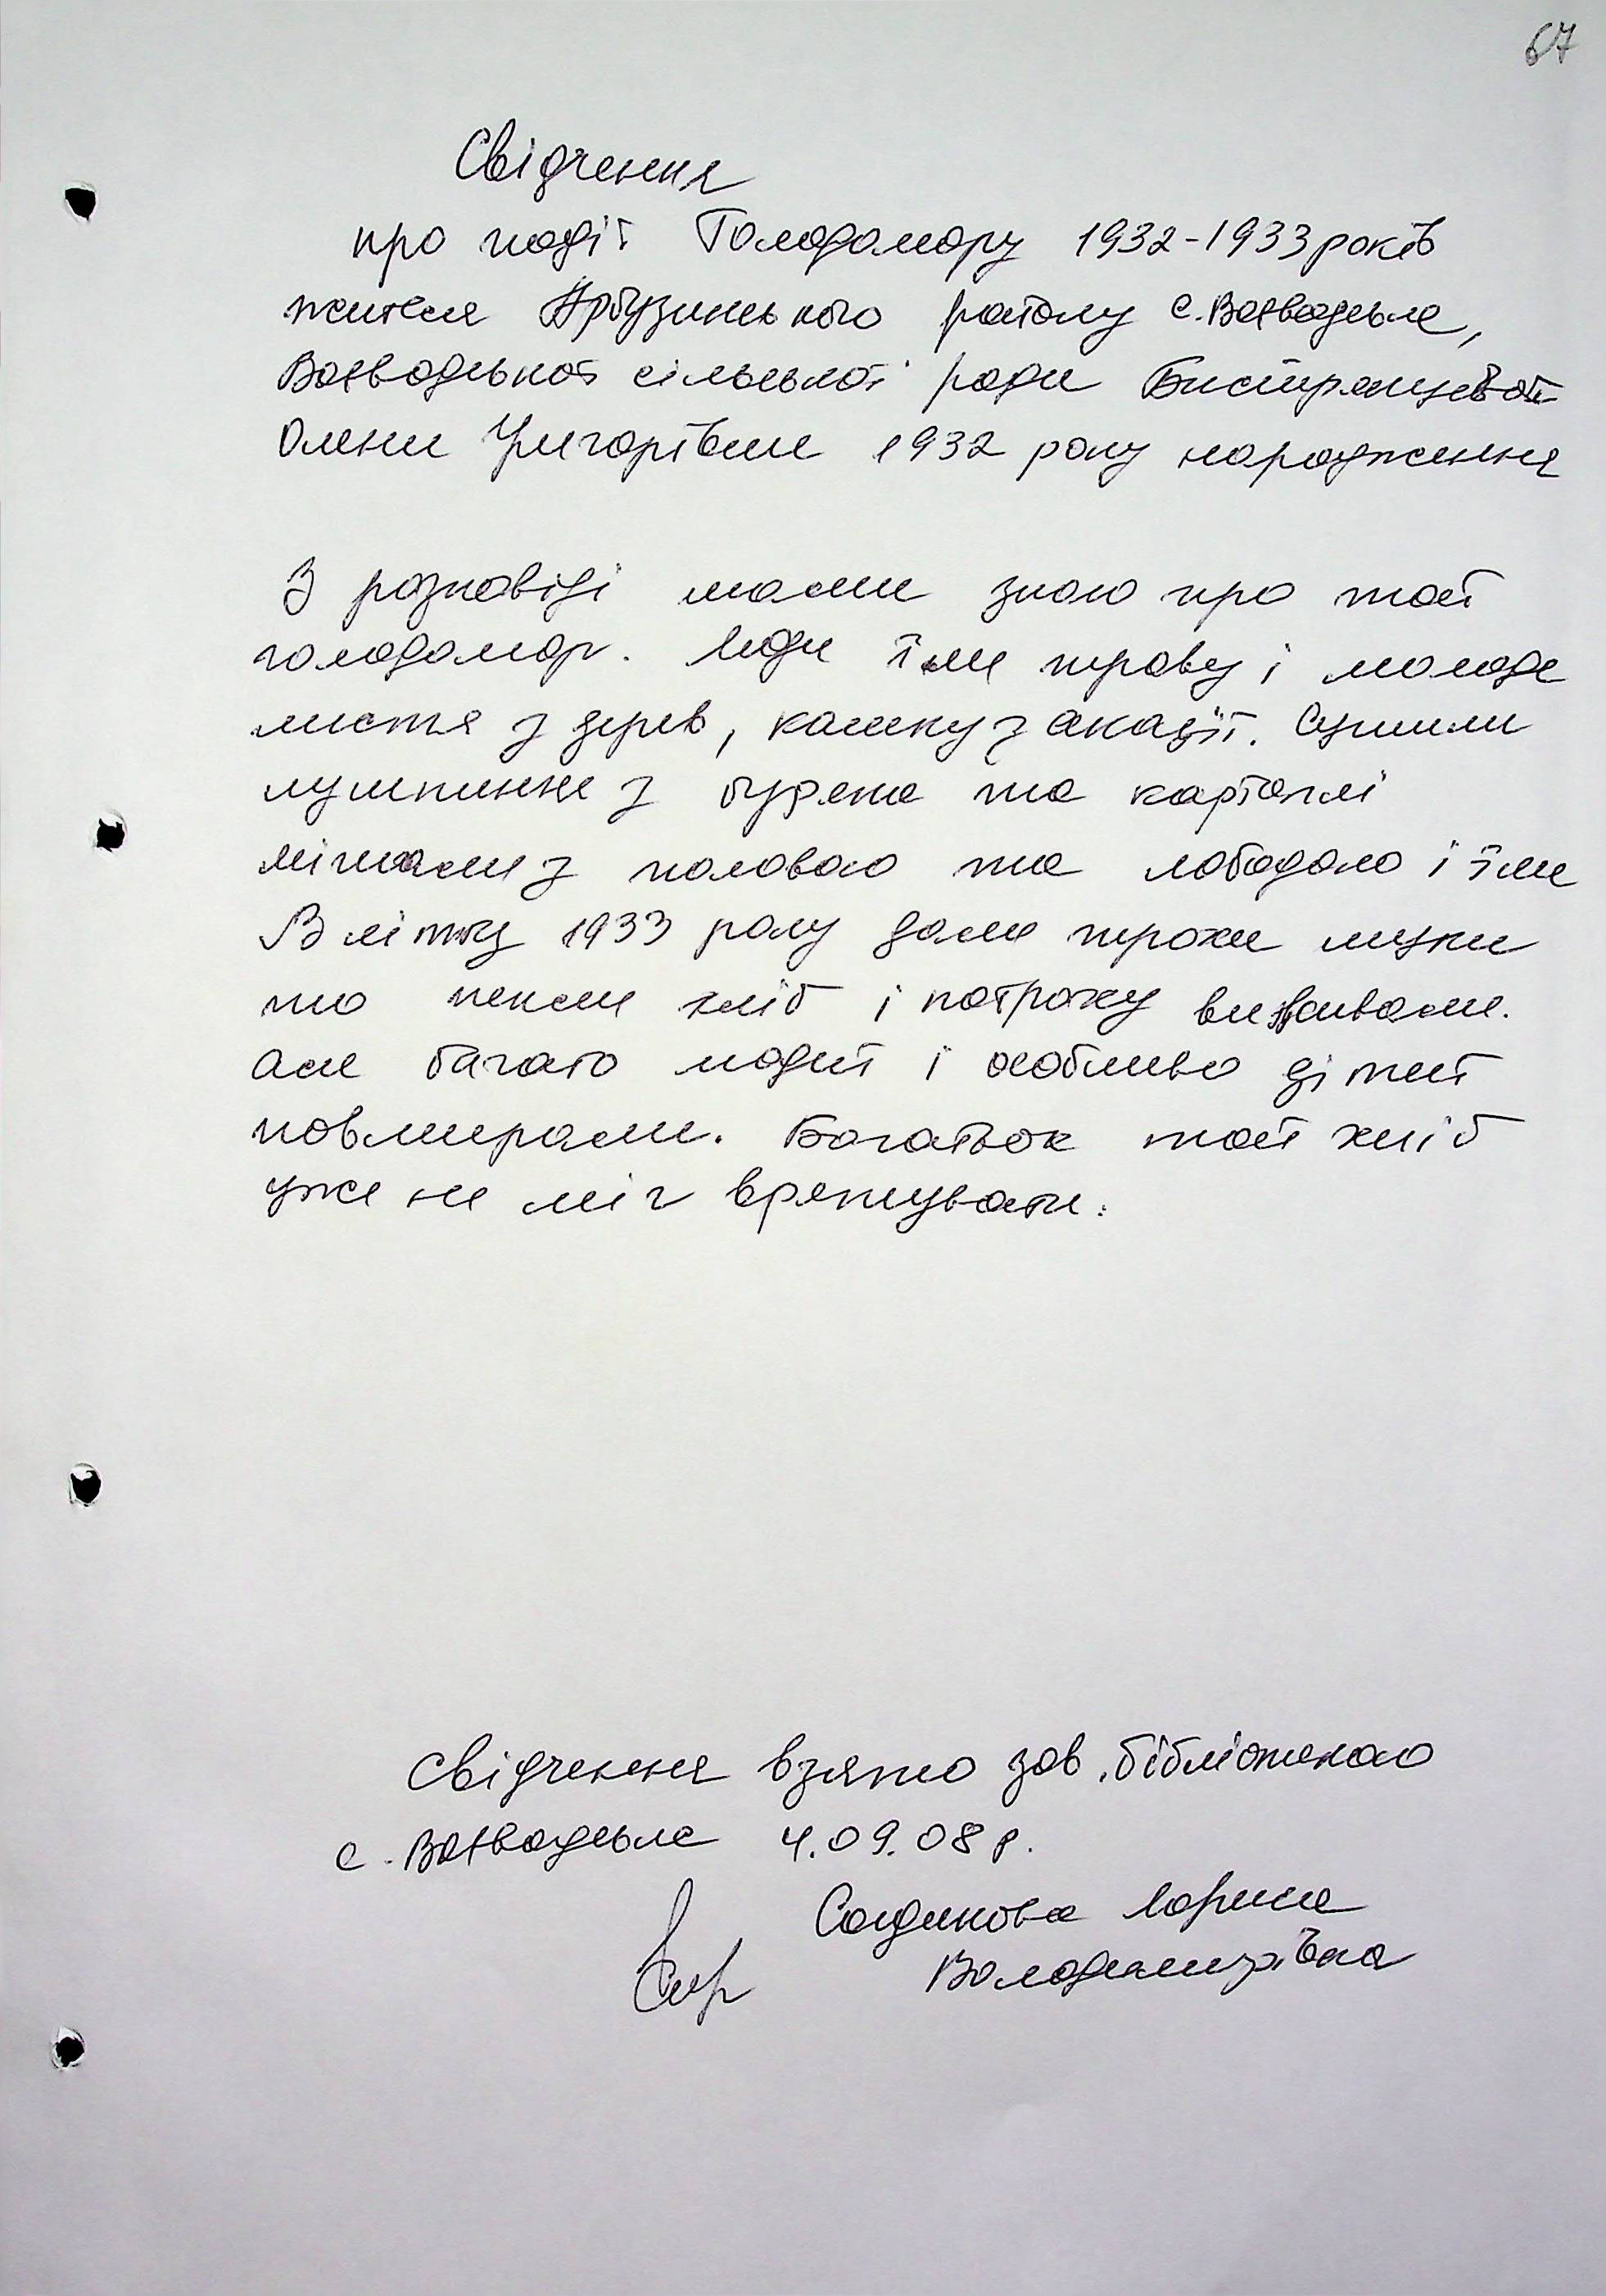 67
Свідчення
про події Голодомору 1932-1933 років
жителя Арбузинського району с. Воєводське,
Воєводської сільської ради Бистрянцевої
Олени Григорівни 1932 року народження
З розповіді мами знаю про той
голодомор. Люди їли траву і молоде
листя з дерев, кашку з акації. Сушили
лушпиння з буряка та картоплі
мішали з половою та лободою і їли
В літку 1933 року дали трохи муки
то пекли хліб і потроху виживали.
але багато людей і особливо дітей
повмирали. Багатьох той хліб
уже не міг врятувати.
Свідчення взято зав. бібліотекою
с. Воєводське 4.09.08 р.
Лариса
Володимирівна